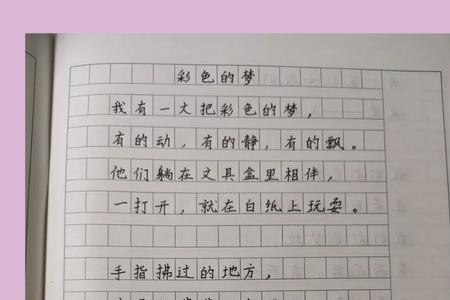 彩色的梦
我有一大把彩色的梦，
有的动，有的静，有的飘。
他们躺在文具盒里相伴，
一打开，就在白纸上玩耍。
手指拂过的地方，